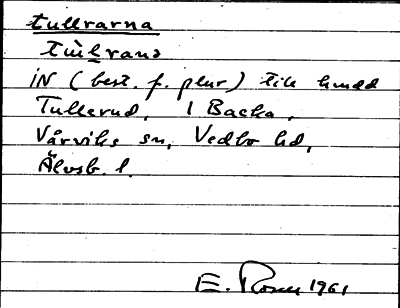 tullrarna
tùlrana
iN (best. f. plur) till hmdd
Tullerud, 1 Backa,
Vårviks sn, Vedbo hd,
Älvsb. l.
E. Rosen 1961